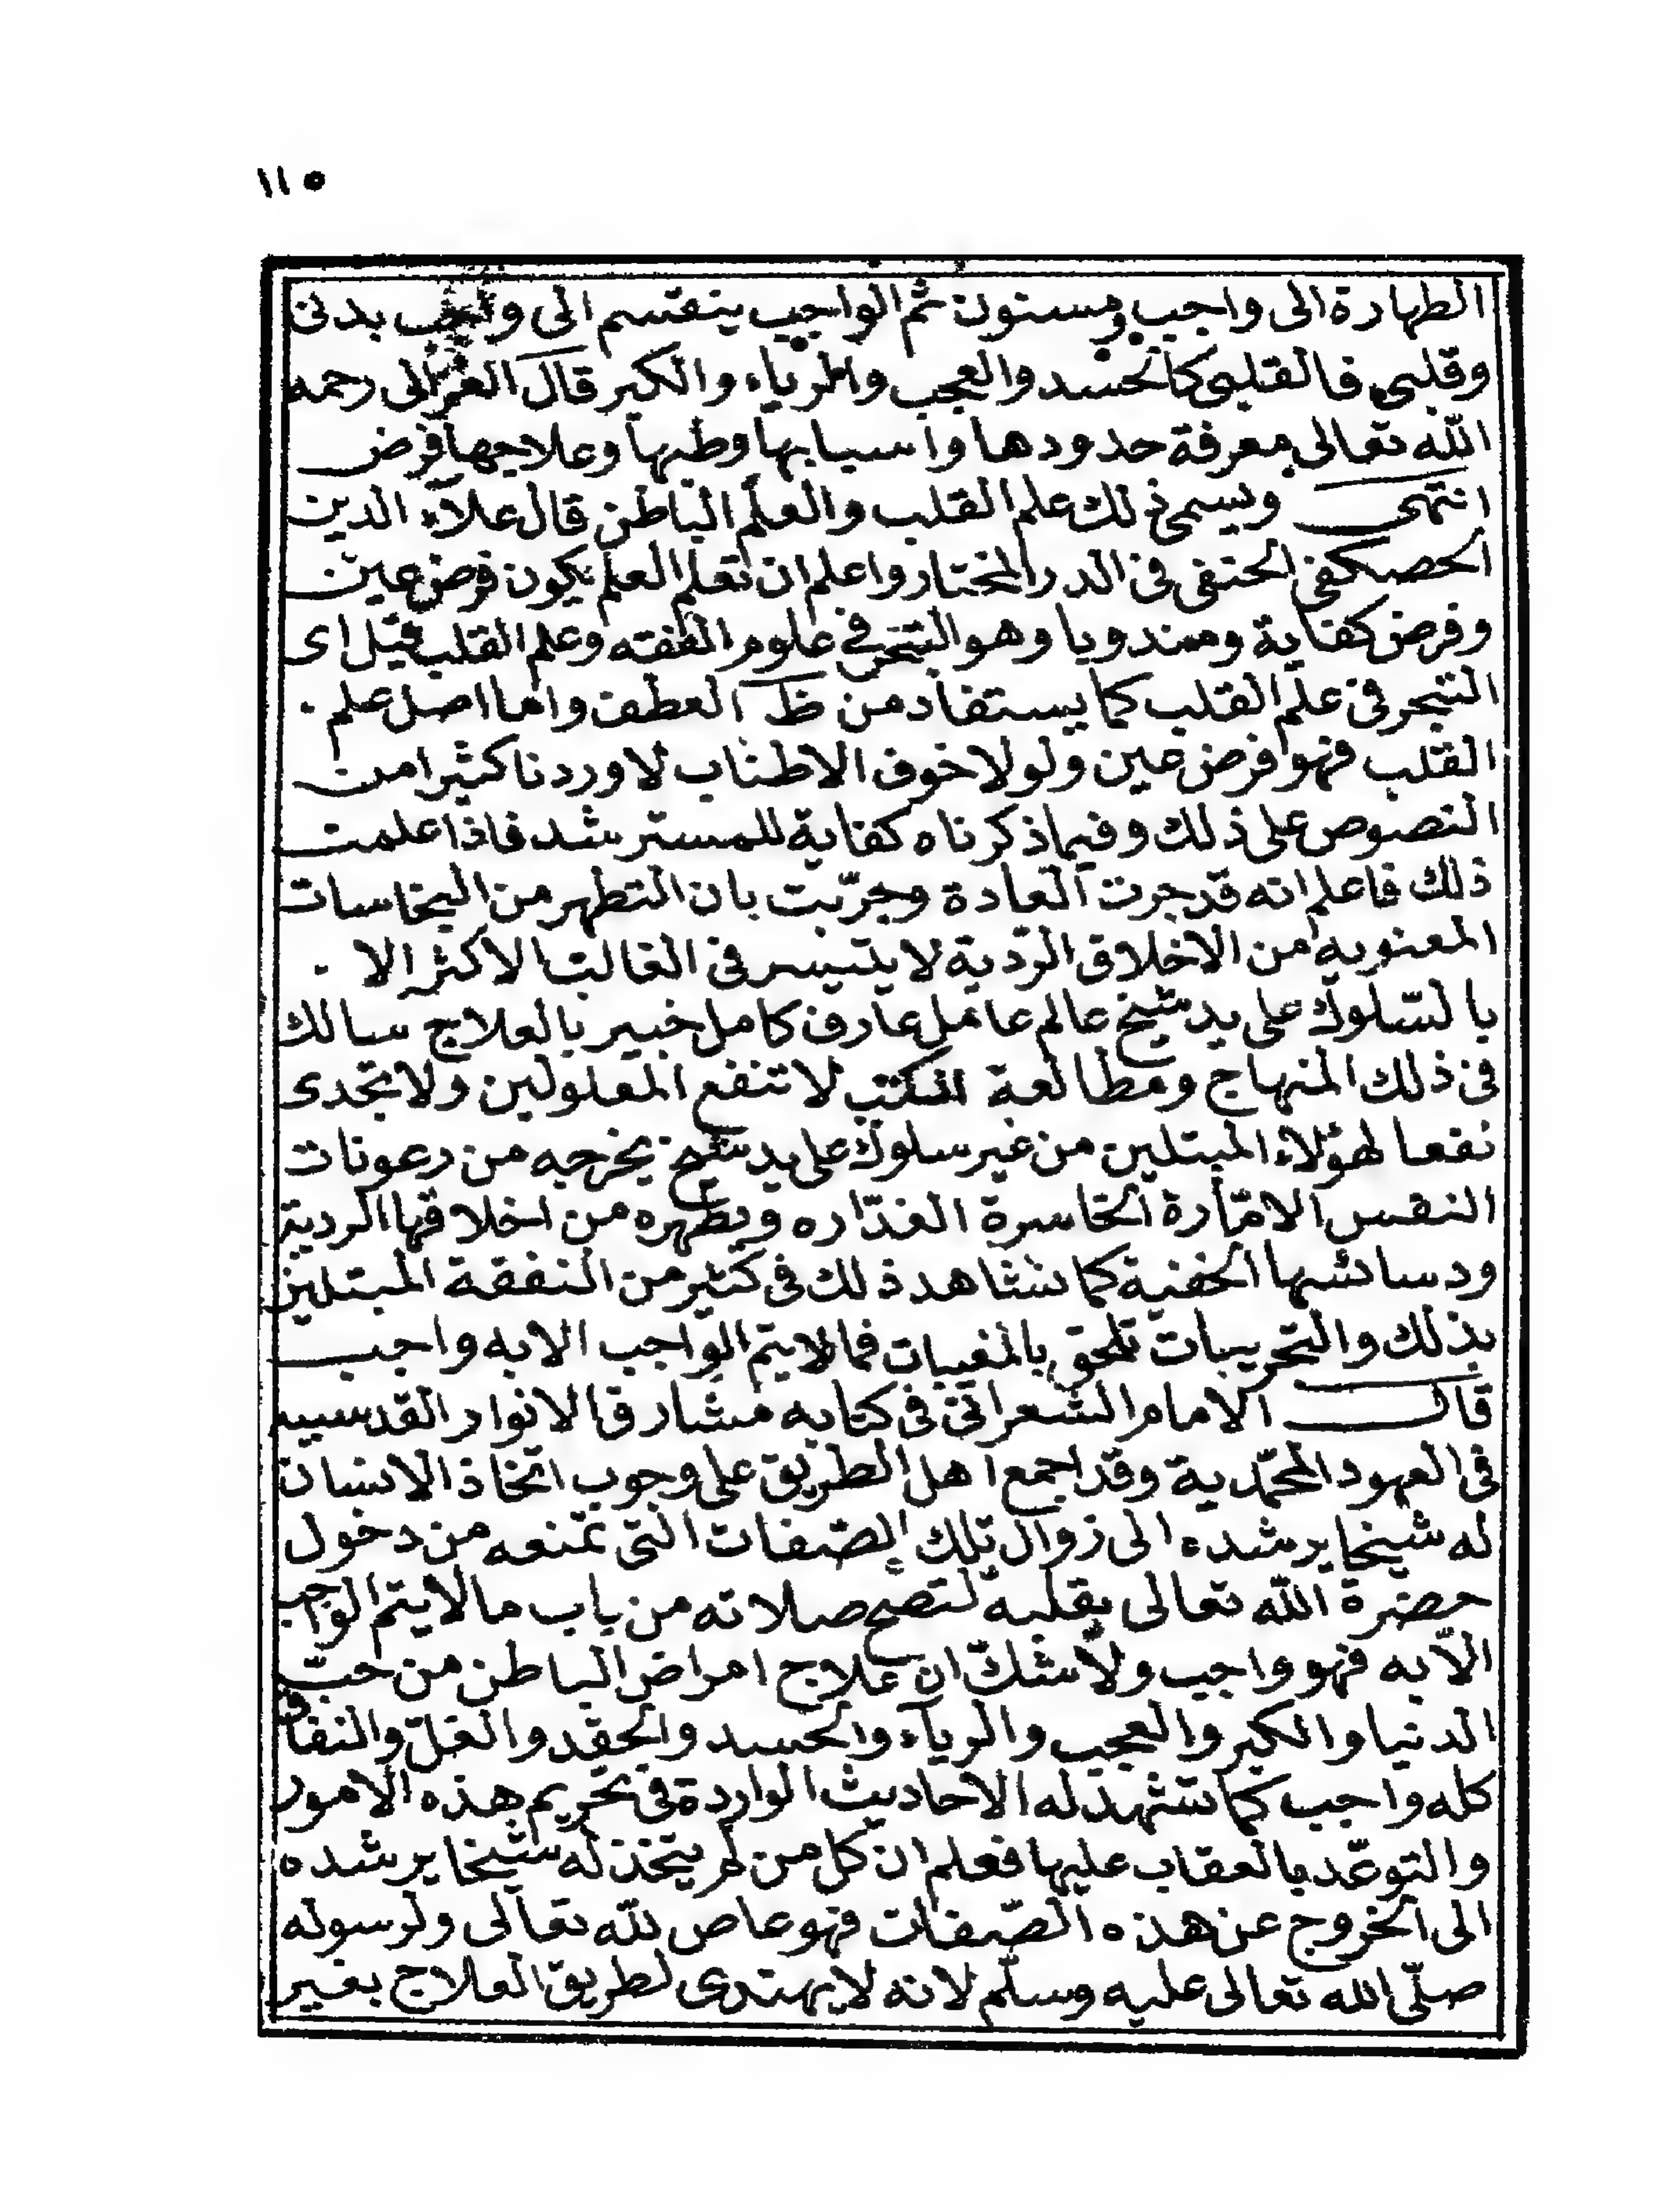 ١١٥
الطهارة الى واجب ومسنون ثم الواجب ينقسم الى واجب بدنى
وقلبى فالقلبى كالحسد والعجب والرياء والكبر قال الغزالى رحمه
الله تعالى معرفة حدودها واسبابها وطبها وعلاجها فرض
انتهى ويسمى ذلك علم القلب والعلم الباطن قال علاء الدين
الحصكفى الحنفى فى الدر المختار واعلم ان تعلم العلم يكون فرض عين
وفرض كفاية ومندوبا وهو التبحر فى علوم الفقه وعلم القلب قيل اى
التبحر فى علم القلب كما يستفاد من ظ العطف واما اصل علم
القلب فهو فرض عين ولولا خوف الاطناب لاوردنا كثيرا من
النصوص على ذلك وفيما ذكرناه كفاية للمسترشد فاذا علمت
ذلك فاعلم انه قد جرت العادة وجرّبت بان التطهر من النجاسات
المعنويه من الاخلاق الردية لا يتيسر فى الغالب الاكثر الا
بالسّلوك على يد شيخ عالم عامل عارف كامل خبير بالعلاج سالك
فى ذلك المنهاج ومطالعة الكتب لا تنفع المعلولين ولا تجدى
نفعا لهؤلاء المبتلين من غير سلوك على يد شيخ يخرجه من رعونات
النفس الامّارة الخاسرة الغدّاره ويطهره من اخلاقها الردية
ودسائسها الخفية كما نشاهد ذلك فى كثير من النفقة المبتلين
بذلك والتجريبات تلحق بالمغيبات فما لا يتم الواجب الا به واجب
قال الامام الشعرانى فى كتابه مشارق الانوار القدسيه
فى العهود المحمّدية وقد اجمع اهل الطريق على وجوب اتخاذ الانسان
له شيخا يرشده الى زوال تلك الصّفات التى تمنعه من دخول
حضرة الله تعالى بقلبه لتصح صلاته من باب ما لا يتم الواجب
الّا به فهو واجب ولا شكّ ان علاج امراض الباطن من حبّ
الدنيا والكبر والعجب والرياء والحسد والحقد والغلّ والنفاق
كله واجب كما تشهد له الاحاديث الواردة فى تحريم هذه الامور
والتوعّد بالعقاب عليها فعلم ان كل من لم يتخذ له شيخا يرشده
الى الخروج عن هذه الصّفات فهو عاص لله تعالى ولرسوله
صلّى الله تعالى عليه وسلّم لانه لا يهتدى لطريق العلاج بغير